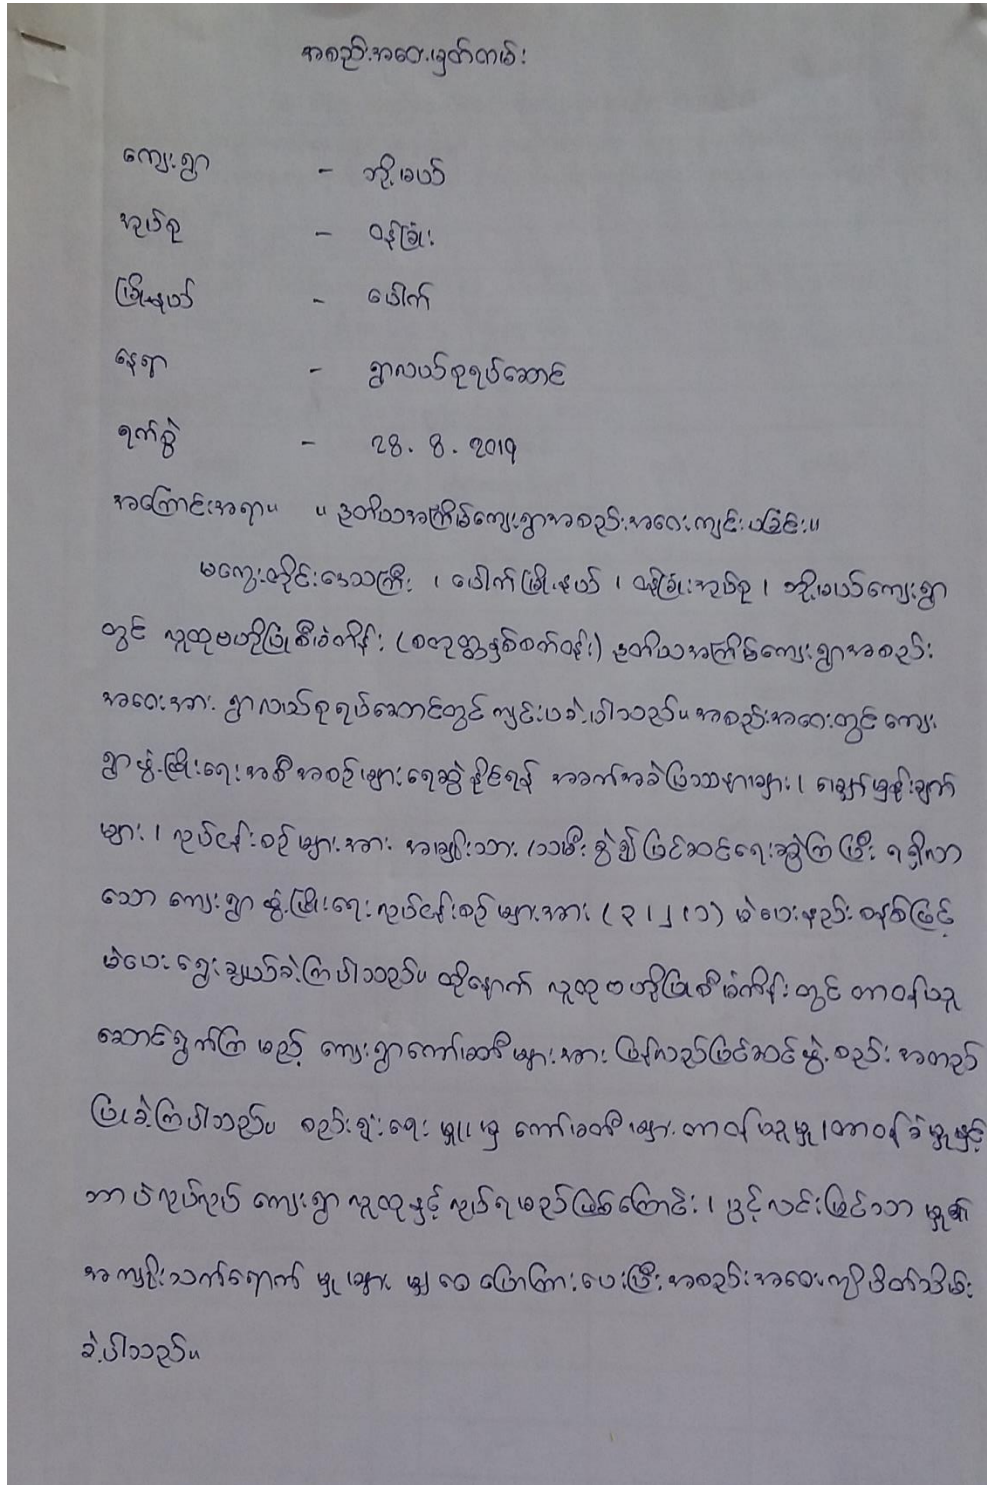 အစည်းအဝေးမှတ်တမ်း
ကျေးရွာ - ဘို့မယ်
အုပ်စု - ဝန်ခြုံး
မြို့နယ် - ပေါက်
နေရာ - ရွာလယ်စုရပ်ဆောင်
ရက်စွဲ - 28. 8. 2019
အကြောင်းအရာ။ ။ ဒုတိယအကြိမ်ကျေးရွာအစည်းအဝေးကျင်းပခြင်း။
မကွေးတိုင်းဒေသကြီး၊ ပေါက်မြို့နယ်၊ ဝန်ခြုံးအုပ်စု၊ ဘို့မယ်ကျေးရွာ
တွင် လူထုဗဟိုပြုစီမံကိန်း (စတုတ္ထနှစ်စက်ဝန်း) ဒုတိယအကြိမ်ကျေးရွာအစည်း
အဝေးအား ရွာလယ်စုရပ်ဆောင်တွင် ကျင်းပခဲ့ပါသည်။ အစည်းအဝေးတွင် ကျေး
ရွာဖွံ့ဖြိုးရေးအစီအစဉ်များရေးဆွဲနိုင်ရန် အခက်အခဲပြဿနာများ၊ မျှော်မှန်းချက်
များ၊ လုပ်ငန်းစဉ်များအား အမျိုးသား၊သမီး ခွဲ၍ ပြင်ဆင်ရေးဆွဲကြပြီး ရရှိလာ
သော ကျေးရွာဖွံ့ဖြိုးရေးလုပ်ငန်းစဉ်များအား (၃၊၂၊၁) မဲပေးနည်းစနစ်ဖြင့်
မဲပေးရွေးချယ်ခဲ့ကြပါသည်။ ထို့နောက် လူထုဗဟိုပြုစီမံကိန်းတွင် တာဝန်ယူ
ဆောင်ရွက်ကြမည့် ကျေးရွာကော်မတီများအား ပြန်လည်ပြင်ဆင်ဖွဲ့စည်း အတည်
ပြုခဲ့ကြပါသည်။ စည်းရုံးရေးမှူးမှ ကော်မတီများ တာဝန်ယူမှု၊တာဝန်ခံမှုနှင့်
ဘာပဲလုပ်လုပ် ကျေးရွာလူထုနှင့်လုပ်ရမည်ဖြစ်ကြောင်း၊ ပွင့်လင်းမြင်သာမှု၏
အကျိုးသက်ရောက်မှုများ မျှဝေပြောကြားပေးပြီး အစည်းအဝေးကိုပိတ်သိမ်း
ခဲ့ပါသည်။